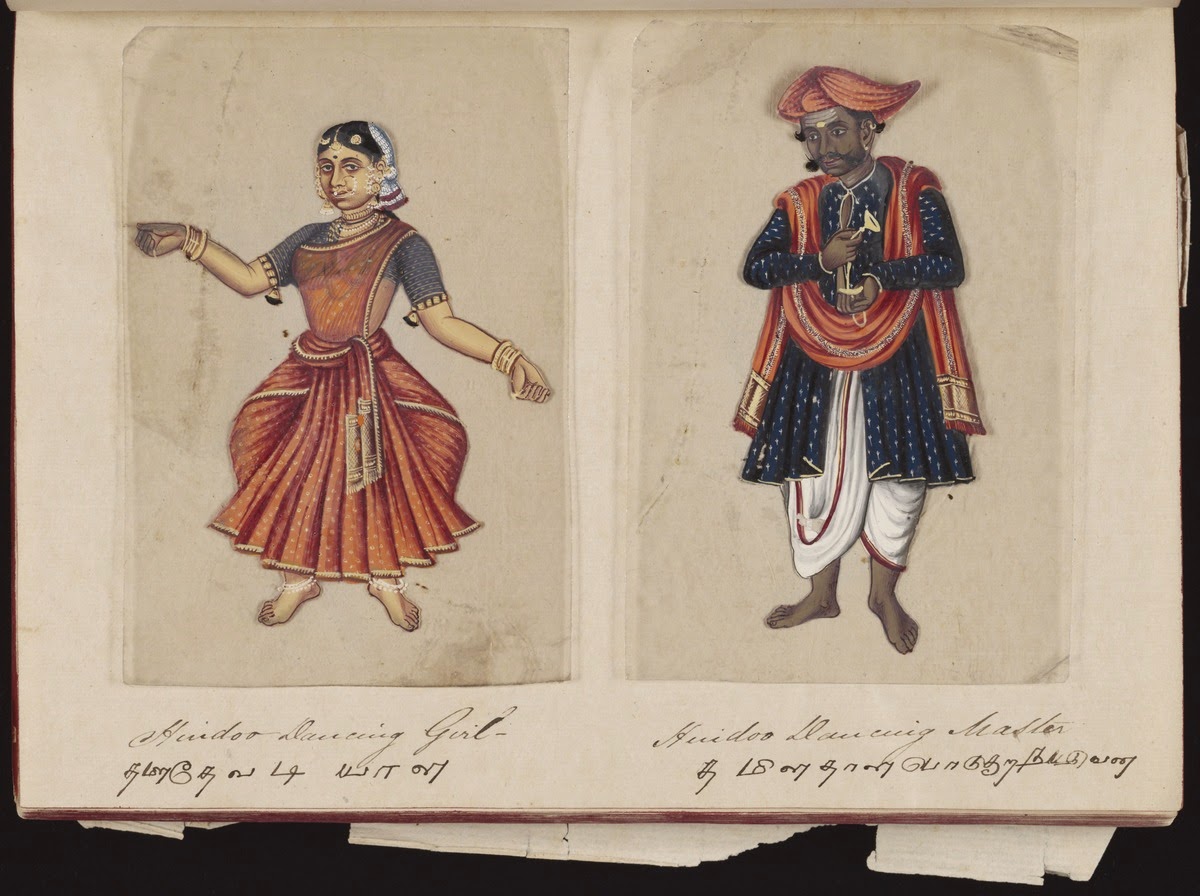 Hindoo Dancing Girl-
தமிழ்தேவடியாள
Hindoo Dancing Master
தமிள தாள